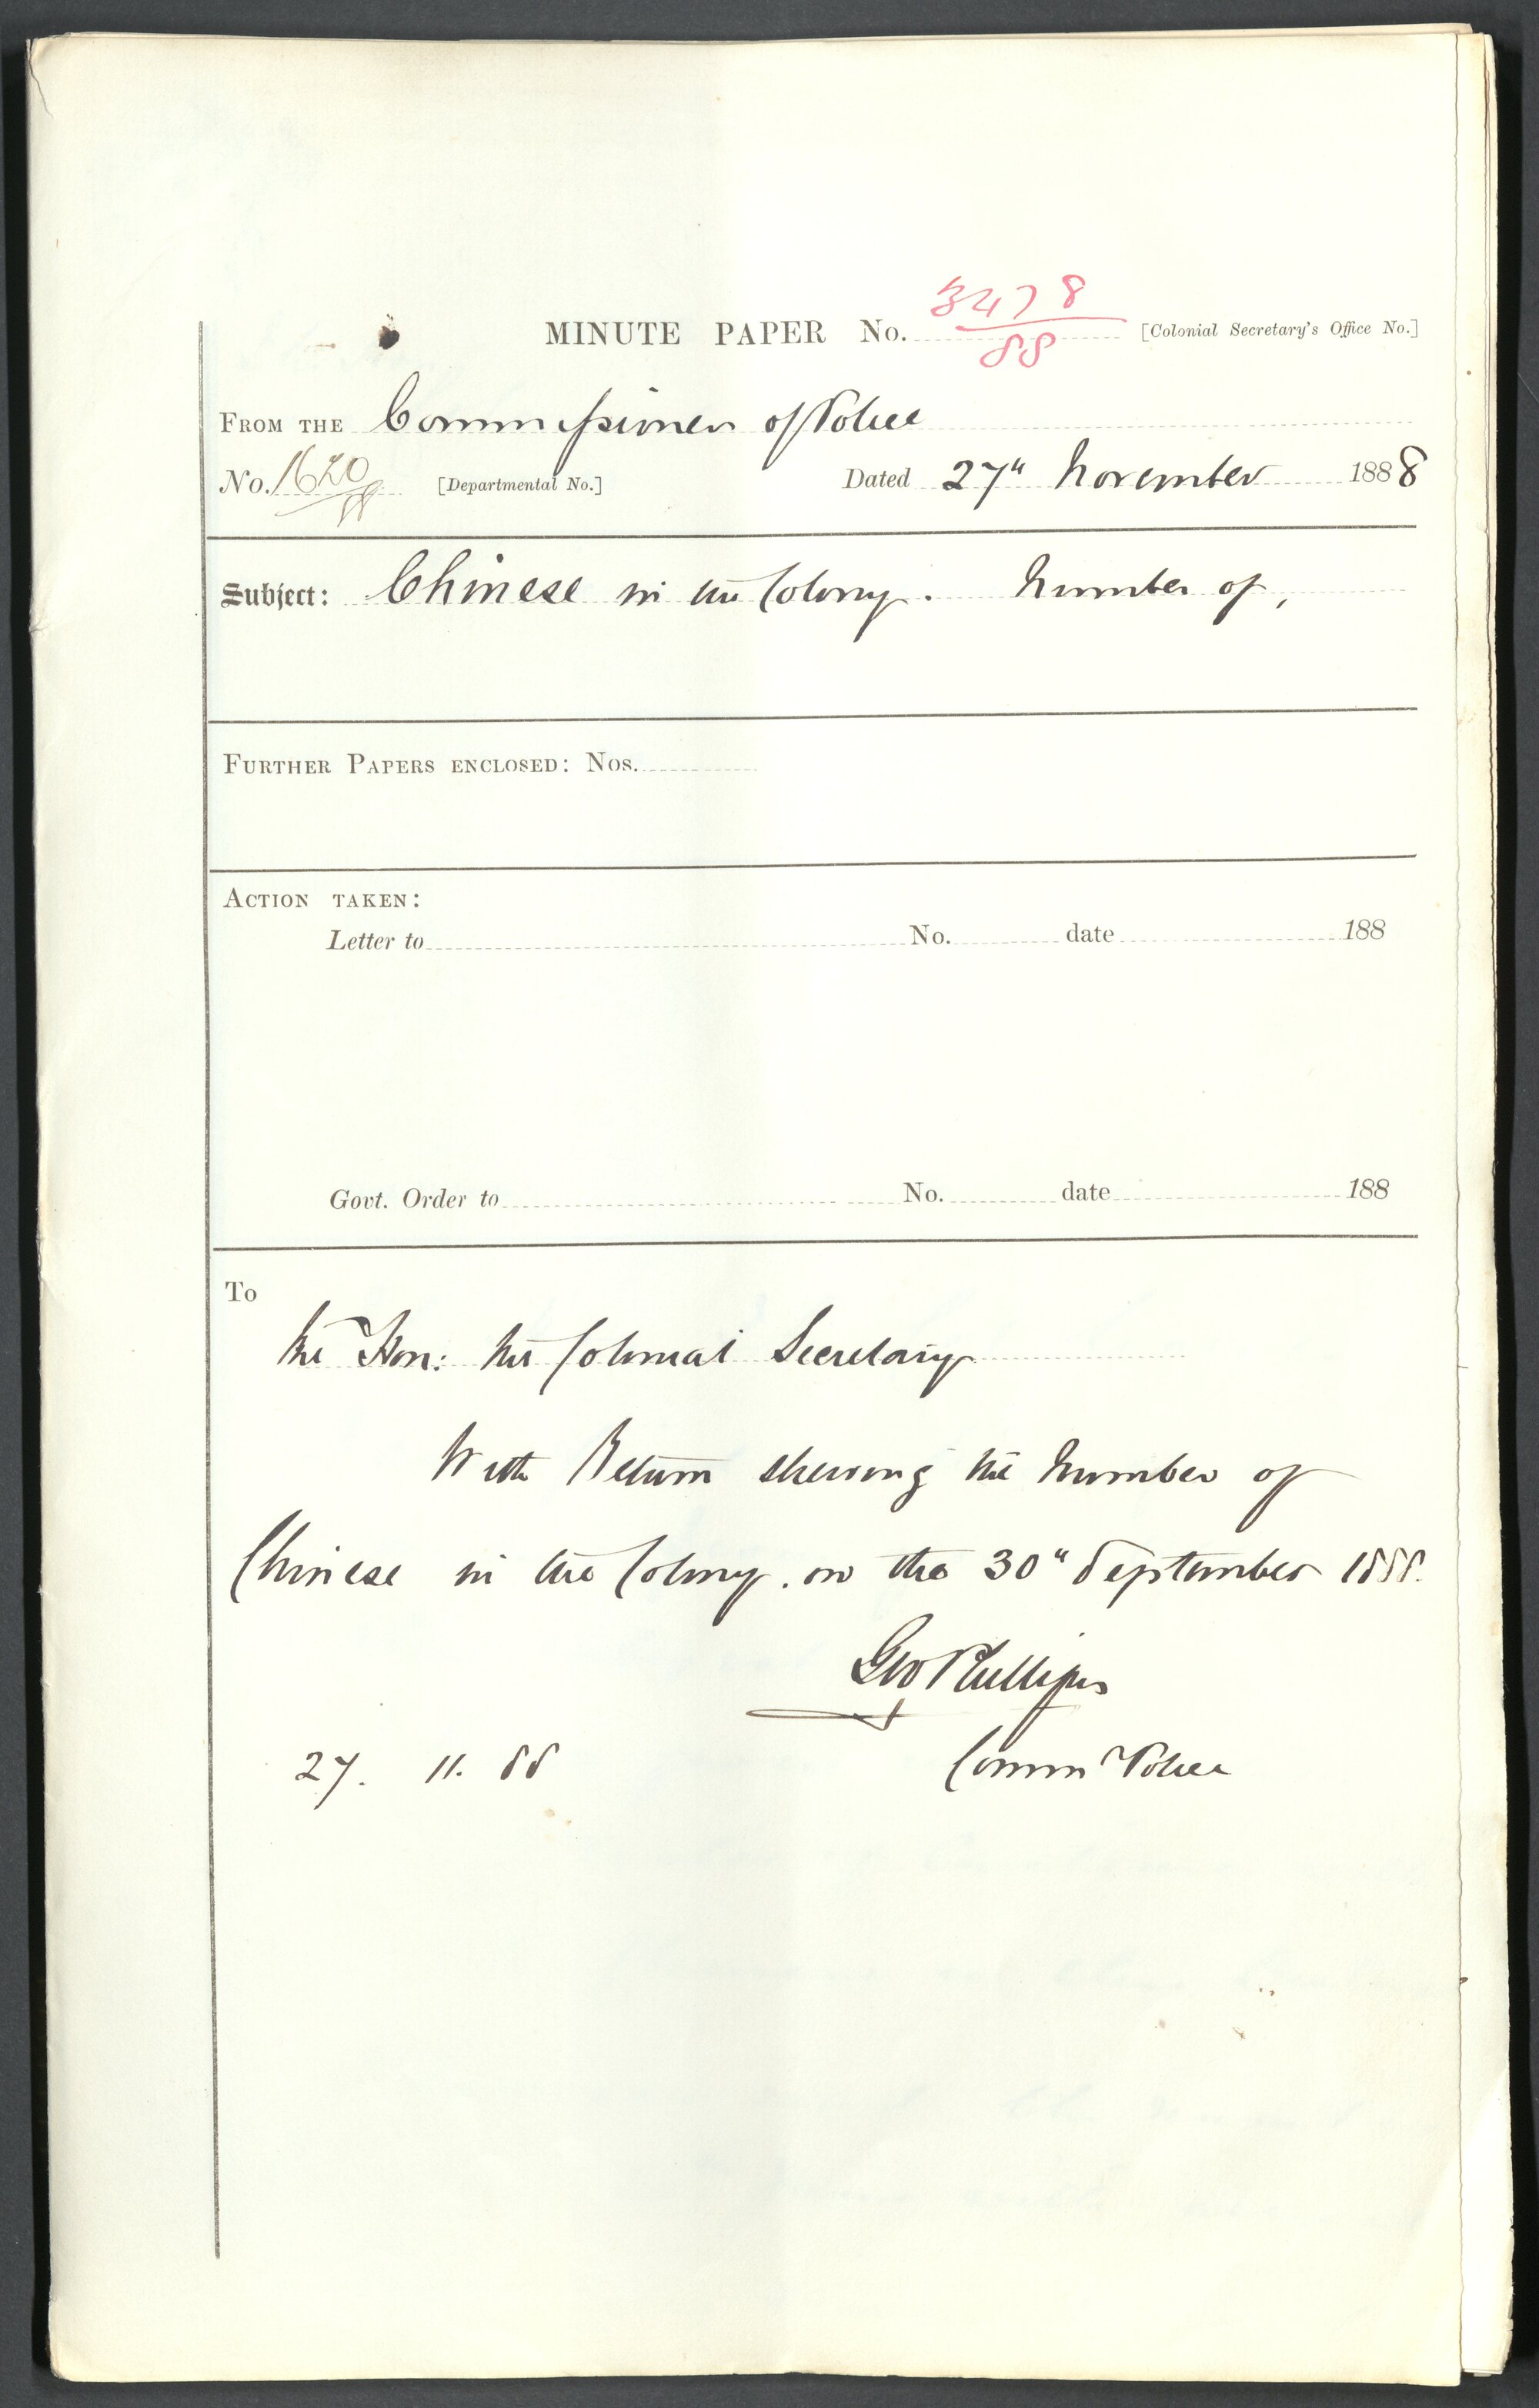 3478
MINUTE PAPER No. [Colonial Secretary's Office No.]
88
FROM THE Commissioner of Police
No. 1620/88 [Departmental No.] Dated 27" November 1888
Subject: Chinese in the Colony. Number of,
FURTHER PAPERS ENCLOSED: Nos.
ACTION TAKEN:
Letter to No. date 188
Govt. Order to No. date 188
To
The Hon: the Colonial Secretary
With Return shewing the number of
Chinese in the Colony. on the 30" September 1888.
Geo Phillips
27. 11. 88 Comm Police